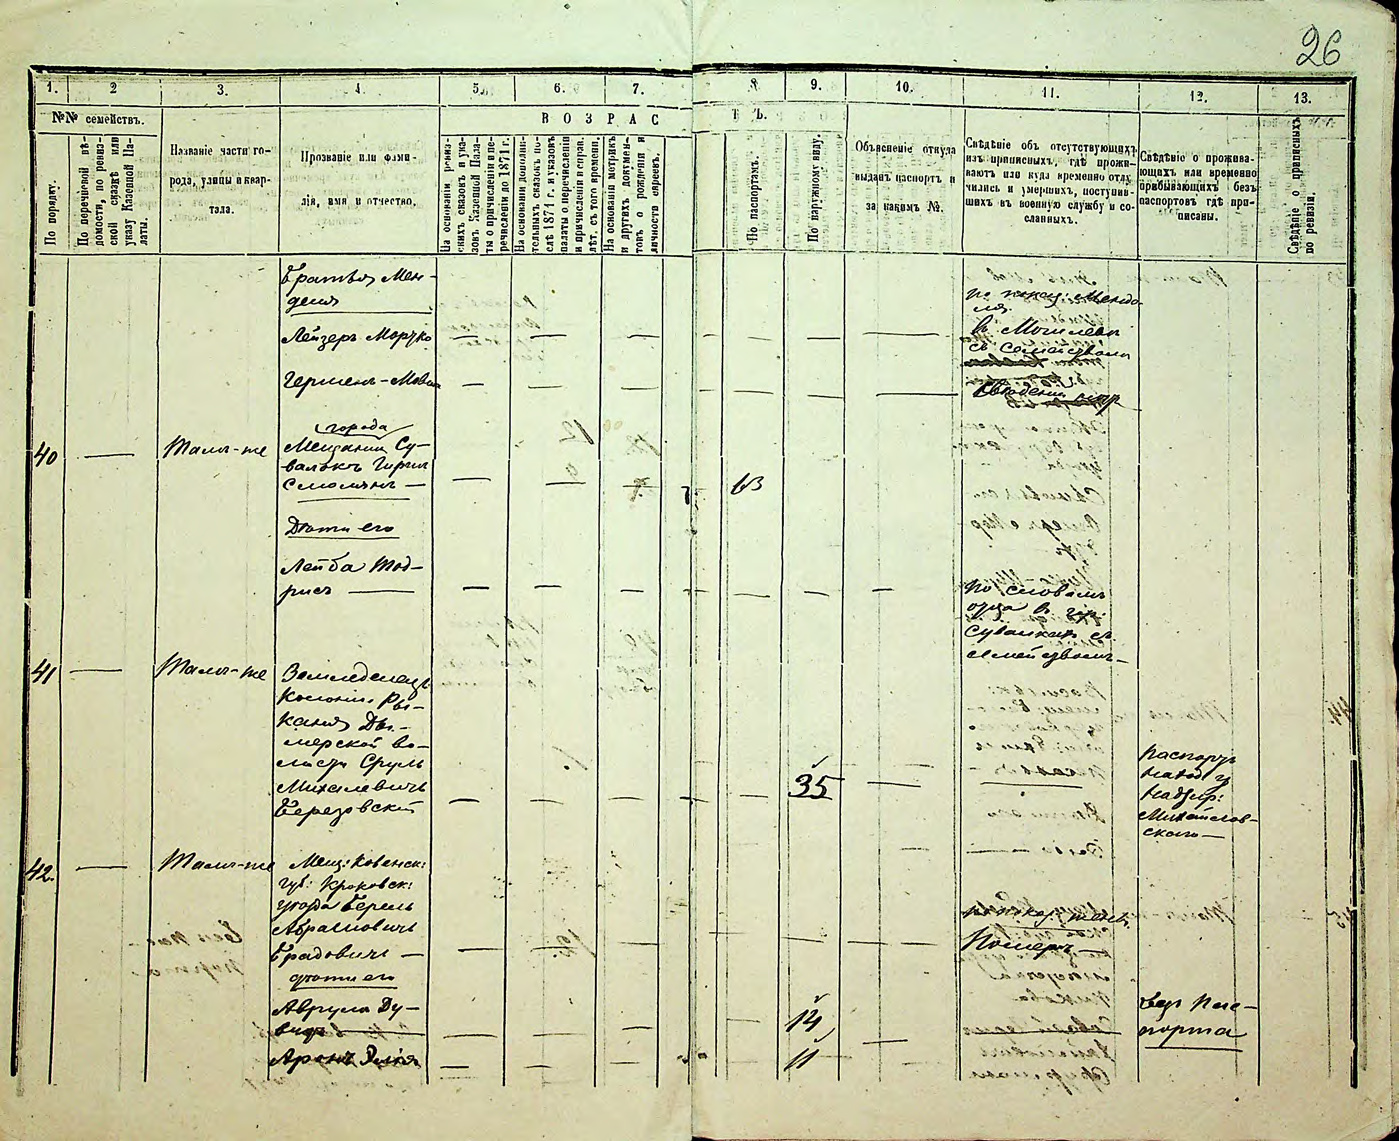 26
1. 2 3. 4. 5. 6. 7. 8. 9. 10. 11. 12. 13.
№№ семействъ.
В О З Р А С Т Ъ.
По порядку.
По перечневой вѣ-
домости, по ревиз-
ской сказкѣ или
указу Казенной Па-
латы.
Названіе части го-
рода, улицы и квар-
тала.
Прозваніе или фами-
лія, имя и отчество.
На основаніи ревиз-
скихъ сказокъ и ука-
зовъ Казенной Пала-
ты о причисленіи и пе-
речисленіи до 1871 г.
На основаніи дополни-
тельныхъ сказокъ по-
слѣ 1871 г. и указовъ
палаты о перечисленіи
и причисленіи въ справ.
лѣт. съ того времени.
На основаніи метрикъ
и другихъ докумен-
товъ о рожденіи и
личности евреевъ.
По паспортамъ.
По наружному виду.
Объясненіе откуда
выданъ паспортъ и
за какимъ №.
Свѣдѣніе объ отсутствующихъ
изъ приписныхъ, гдѣ прожи-
ваютъ или куда временно отлу
чились и умершихъ, поступив-
шихъ въ военную службу и со-
сланныхъ.
Свѣдѣніе о прожива-
ющихъ или временно
прибывающихъ безъ
паспортовъ гдѣ при-
писаны.
Свѣдѣніе о приписныхъ
по ревизіи.
Братья Мен-
деля
по показ: Менде-
ля.
Лейзеръ Мортко
въ Могилевѣ
съ семействомъ
40 Тамъ-же
города
Мещанинъ Су-
валокъ Гиршъ
Смолянъ 63
Дѣти его
Лейба Тод-
рисъ
По словамъ
отца въ гор:
Сувалкахъ съ
семействомъ
41 Тамъ-же Земледелецъ
колоніи Ры-
каня Ды-
мерской во-
лости Сруль
Михелевичъ
Березовскій
35
паспортъ
наход. у
надзир:
Михайлов-
скаго
42. Тамъ-же Мещ: Ковенск:
губ:
уезда Берель
Абрамовичъ
Брадовичъ
Померъ
дѣти его
Аврумъ Ду-
видъ 14
Безъ пас-
порта
Аронъ 11